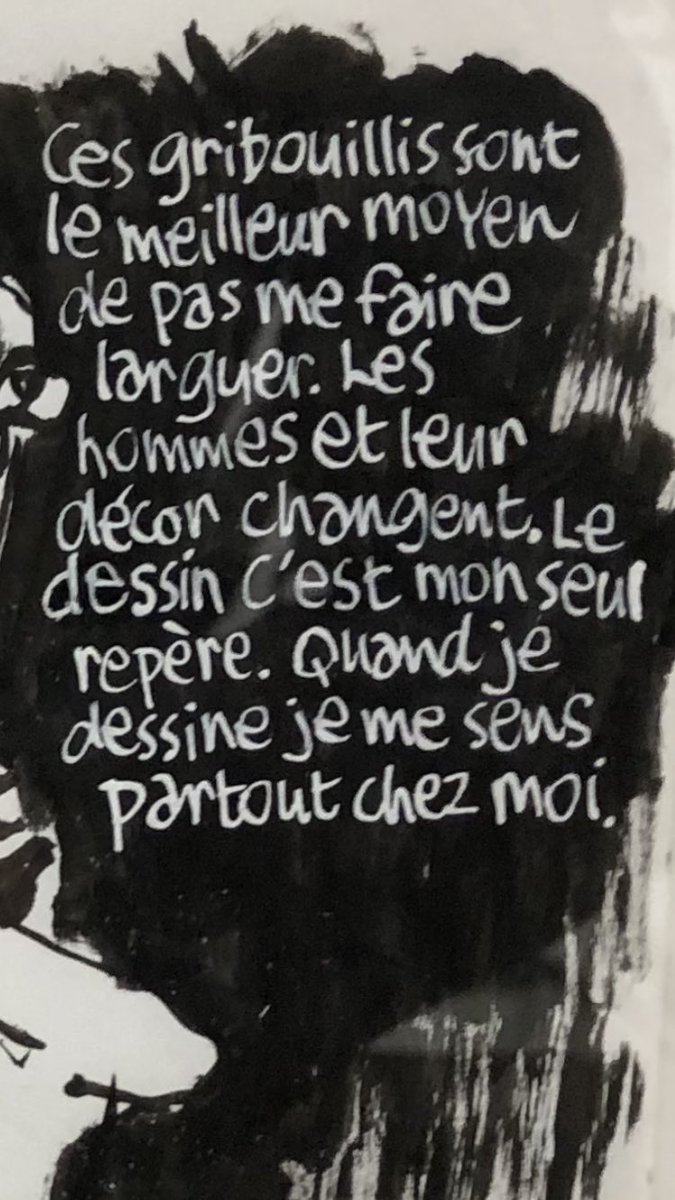 Ces gribouillis sont
le meilleur moyen
de pas me faire
larguer. Les
hommes et leur
décor changent. Le
dessin c'est mon seul
repère. Quand je
dessine je me sens
partout chez moi.